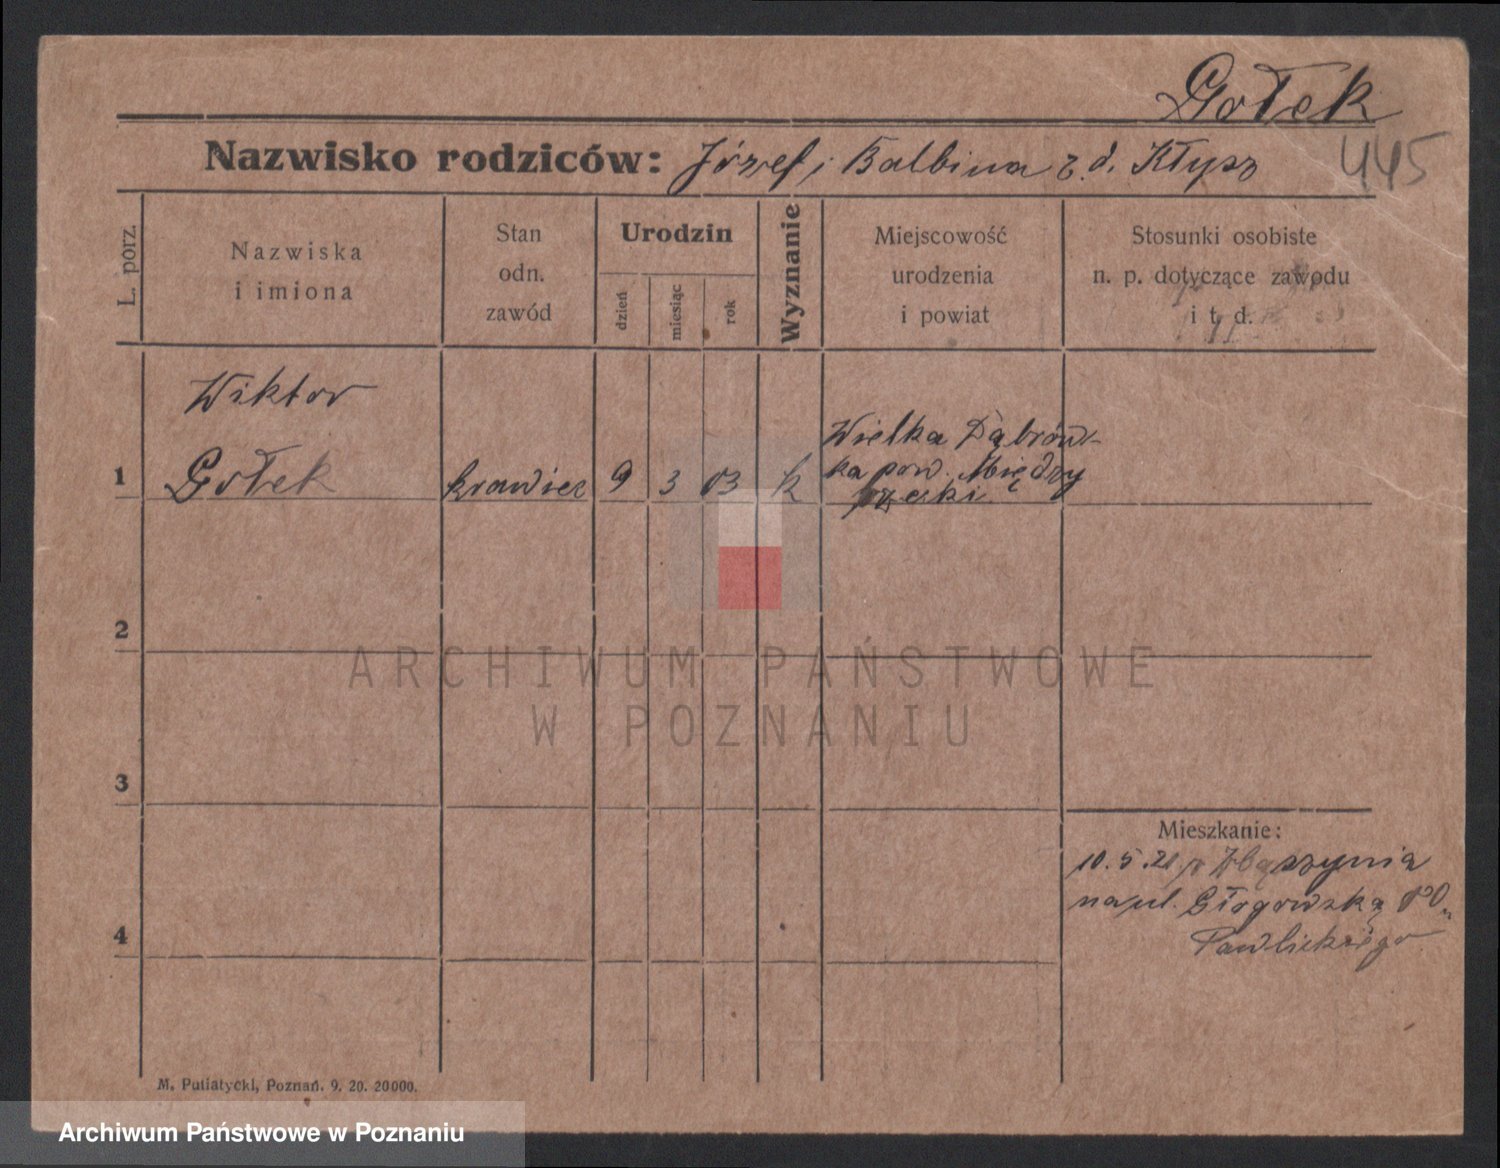 Gołek
Nazwisko rodziców: Józef i Balbina z d. Kłysz
445
L. porz.
Nazwiska
i imiona
Stan
odn.
zawód
Urodzin
dzień
miesiąc
rok
Wyznanie
Miejscowość
urodzenia
i powiat
Stosunki osobiste
n. p. dotyczące zawodu
i t. d.
Wiktor
1 Gołek krawiec 9 3 03 k
Wielka Dąbrów-
ka pow. Między
rzecki
2
ARCHIWUM PAŃSTWOWE
W POZNANIU
3
Mieszkanie:
10.5.21 z Zbąszynia
na ul. Głogowską
4
Pawlickiego
M. Putiatycki, Poznań. 9. 20. 20000.
Archiwum Państwowe w Poznaniu